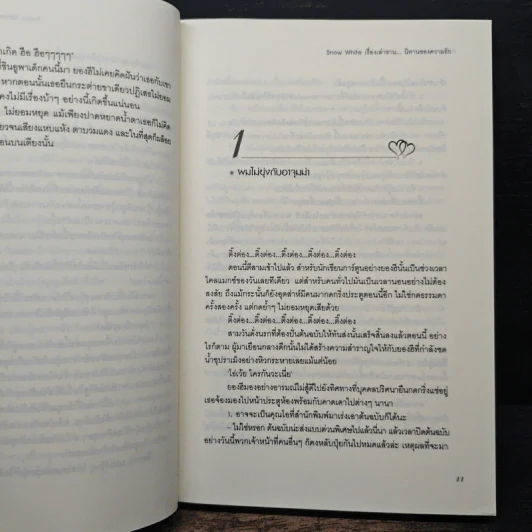 าเกิด ฮือ ฮือๆๆๆๆๆ"
ที่ชินอูพาเด็กคนนี้มา ยองฮีไม่เคยคิดฝันว่าเธอกับเขา
หากตอนนั้นเธอยืนกระต่ายขาเดียวปฏิเสธไม่ยอม
คงไม่มีเรื่องบ้าๆ อย่างนี้เกิดขึ้นแน่นอน
ไม่ยอมหยุด แม้เพียงปาดหยาดน้ำตาเธอก็ไม่คิด
ยวจนเสียงแหบแห้ง ตาบวมแดง และในที่สุดก็ผล็อย
อนบนเตียงนั้น
Snow White เรื่องเล่าขาน... นิทานของความรัก
1
ผมไม่ยุ่งกับอาจุมม่า
ติ๊งต่อง...ติ๊งต่อง...ติ๊งต่อง...ติ๊งต่อง...ติ๊งต่อง
ตอนนี้ตีสามเข้าไปแล้ว สำหรับนักเขียนการ์ตูนอย่างยองฮีนั้นเป็นช่วงเวลา
ไคลแมกซ์ของวันเลยทีเดียว แต่สำหรับคนทั่วไปมันเป็นเวลานอนอย่างไม่ต้อง
สงสัย ถึงแม้กระนั้นก็ยังอุตส่าห์มีคนมากดกริ่งประตูตอนนี้อีก ไม่ใช่กดธรรมดา
ครั้งสองครั้ง แต่กดย้ำๆ ไม่ยอมหยุดเสียด้วย
ติ๊งต่อง...ติ๊งต่อง...ติ๊งต่อง...ติ๊งต่อง...ติ๊งต่อง
สามวันดั่งนรกที่ต้องปั่นต้นฉบับให้ทันส่งนั้นเสร็จสิ้นลงแล้วตอนนี้ อย่าง
ไรก็ตาม ผู้มาเยือนกลางดึกนั้นไม่ได้สร้างความสำราญใจให้กับยองฮีที่กำลังซด
น้ำซุปรามิงอย่างหิวกระหายเลยแม้แต่น้อย
'โธ่เว้ย ใครกันวะเนี่ย'
ยองฮีมองอย่างอารมณ์ไม่สู้ดีไปยังทิศทางที่บุคคลปริศนายืนกดกริ่งแช่อยู่
เธอจ้องมองไปหน้าประตูห้องพร้อมกับคาดเดาไปต่างๆ นานา
1. อาจจะเป็นคุณโอที่สำนักพิมพ์มาเร่งเอาต้นฉบับก็ได้นะ
- ไม่ใช่หรอก ต้นฉบับน่ะส่งแบบด่วนพิเศษไปแล้วนี่นา แล้วเวลาปิดต้นฉบับ
อย่างวันนี้พวกเจ้าหน้าที่คนอื่นๆ ก็คงหลับปุ๋ยกันไปหมดแล้วล่ะ เหตุผลที่จะมา
11